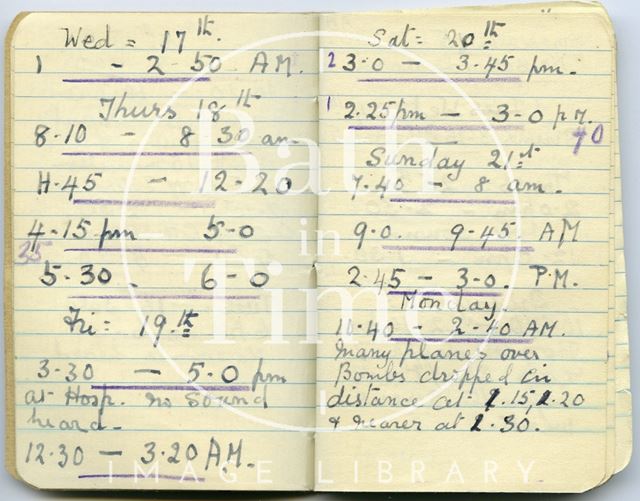 Wed = 17th.
1 - 2-50 A.M.
Thurs 18th
8.10 - 8 30 am
11.45 - 12-20
4.15 pm - 5-0
35
5.30 - 6-0
Fri = 19.th
3-30 - 5.0 pm
at Hosp. no sound
heard -
12.30 - 3.20 A.M.
Sat = 20th
2 3-0 - 3.45 pm.
1 2.25pm - 3-0 p.m.
40
Sunday 21st
7.40 - 8 am.
9.0. 9.45. AM
2.45 - 3-0. P.M.
Monday.
10.40 - 2-40 AM.
Many planes over
Bombs dropped in
distance at 1.15, 1.20
& nearer at 1.30.
Bath
in
Time
IMAGE LIBRARY